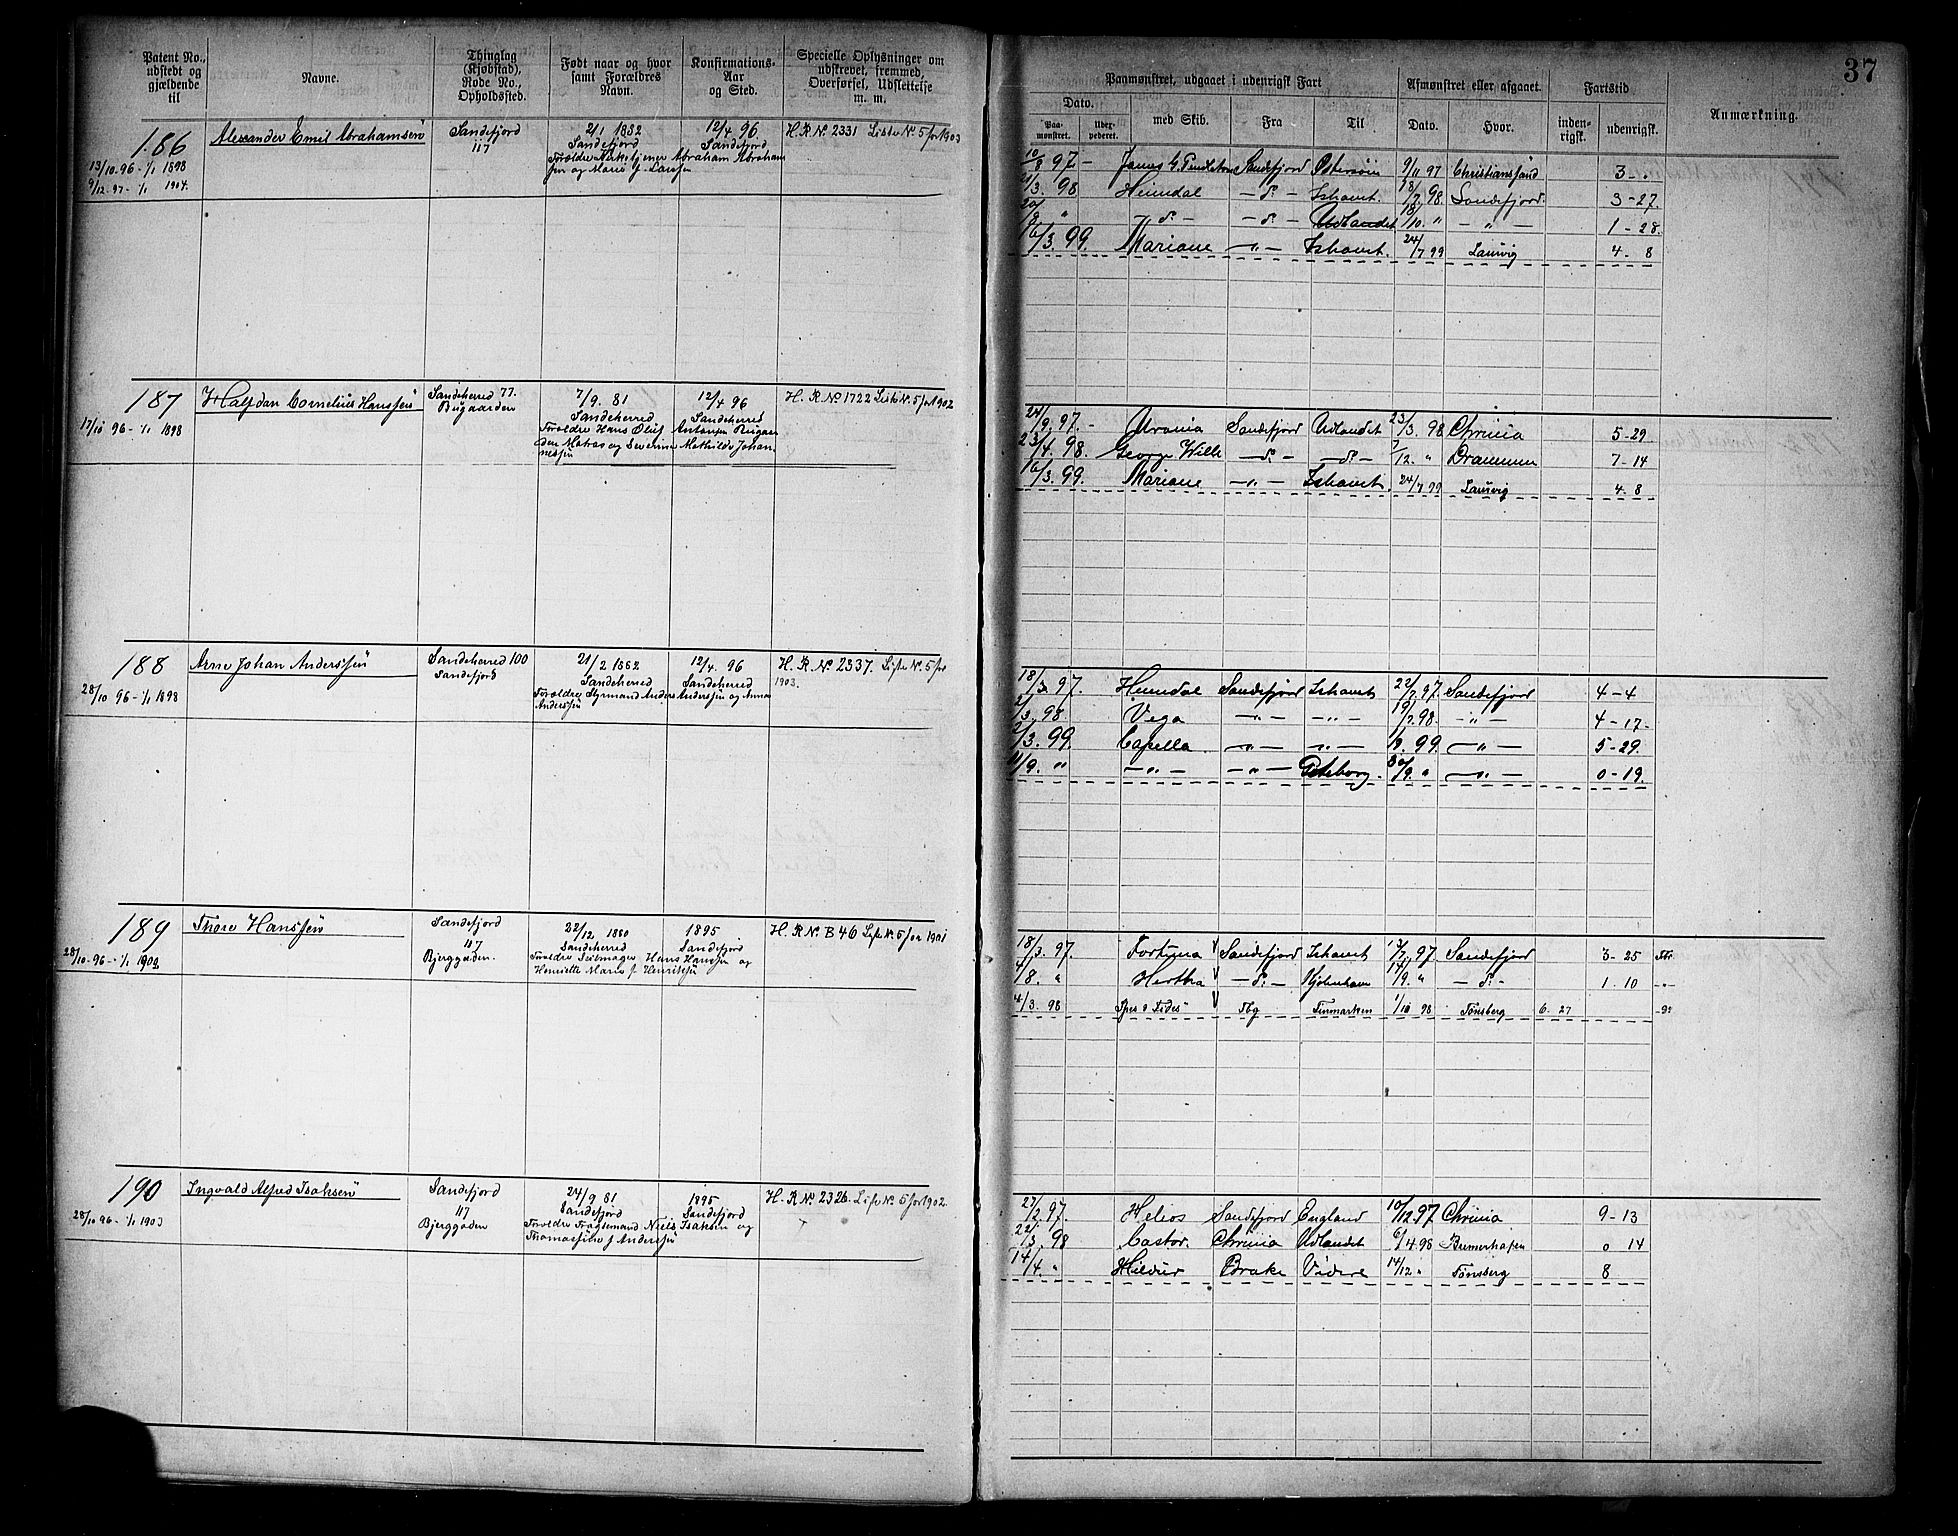 37
Patent No., udstedt og gjældende til
Navne.
Thinglag (Kjøbstad), Rode No., Opholdssted.
Født naar og hvor samt Forældres Navn.
Konfirmations-Aar og Sted.
Specielle Oplysninger om udskrevet, fremmed, Overførsel, Udslettelse m. m.
Paamønstret, udgaaet i udenrigsk Fart
Dato.
Paa-mønstret.
Uder-pederet.
med Skib.
Fra
Til
Afmønstret eller afgaaet.
Dato.
Hvor.
Fartstid
inden-rigsk.
udenrigsk.
Anmærkning.
186
Alexander Emil Abrahamsen
13/10. 96 - 1/1 1898
9/12. 97. - 1/1 1904.
Sandefjord
117
2/1 1882
Sandefjord
12/4 96.
Sandefjord
H. R. No. 2331 Liste No. 5 for 1903
10/8 97 - James G. Pendleton Sandefjord Østersøen 9/11 97 Christianssand 3 - "
21/3. 98 Heimdal - do - Ishavet. 18/7. 98 Sandefjord. 3 - 27.
20/8 " do - - do - Udlandet 18/10. " - " - 1 - 28.
16/3. 99. Mariane - " - Ishavet. 24/7 99 Laurvig 4 - 8
187
Halfdan Cornelius Hanssen
17/10 96 - 1/1 1898
Sandeherred 77.
Bugaarden
7/9. 81
Sandeherred
Forældre Hans Oluf
12/4 96
Sandeherred
H. R. No 1722 Liste No. 5 for 1902
24/9. 97. - Urania Sandefjord Udlandet 23/3. 98 Chrania 5 - 29.
23/4. 98. George Wille - do - - do - 7/12. " Drammen 7 - 14
16/3. 99. Mariane - " - Ishavet. 24/7 99 Laurvig 4. 8
188
Arne Johan Anderssen
28/10 96 - 1/1 1898
Sandeherred 100
Sandefjord
21/2 1882
Sandeherred
Forældre Styrmand Anders Anderssen og Anna
Anderssen
12/4. 96
Sandeherred
H. R. No. 2337. Liste No. 5 for
1903.
18/3. 97. Heimdal Sandefjord Ishavet 22/7. 97. Sandefjord 4 - 4
2/3. 98. Vega - " - - " - 19/7. 98. - " - 4 - 17.
2/3. 99. Capella. - " - - " - 1/9. 99. - " - 5 - 29.
11/9. " - " - - " - Gøteborg. 30/9. " - " - 0 - 19.
189
Thore Hanssen
28/10. 96 - 1/1 1902.
Sandefjord
117
Bjerggaden.
22/12. 1880
Sandeherred
Forældre Seilmager Hans Hanssen og
Henriette Marie f. Henriksen
1895
Sandefjord
H. R. No. B 46 Liste No. 5 for 1901
18/3. 97. Fortuna Sandefjord Ishavet 13/7. 97 Sandefjord 3 - 25
4/8. " Hertha - do - Kjøbenhavn 14/9. " - do - 1. 10
4/3. 98 Spes & Fides Tbg Finmarken 1/10 98 Tønsberg 6. 27
190
Ingvald Alfred Isaksen
28/10 96 - 1/1 1903
Sandefjord
117
Bjerggaden
24/9 81
Sandefjord
Forældre Fragtemand Niels Isaksen og
Thomassine f. Anderssen
1895
Sandefjord
H. R. No 2326. Liste No. 5 for 1902.
23/2. 97. Helios Sandefjord England 10/12 97 Chrania 9 - 13
22/3. 98 Castor. Chrania Udlandet 6/4. 98 Bremerhafen 0 14
14/4. " Hildur Brake Videre 14/12 " Tønsberg 8